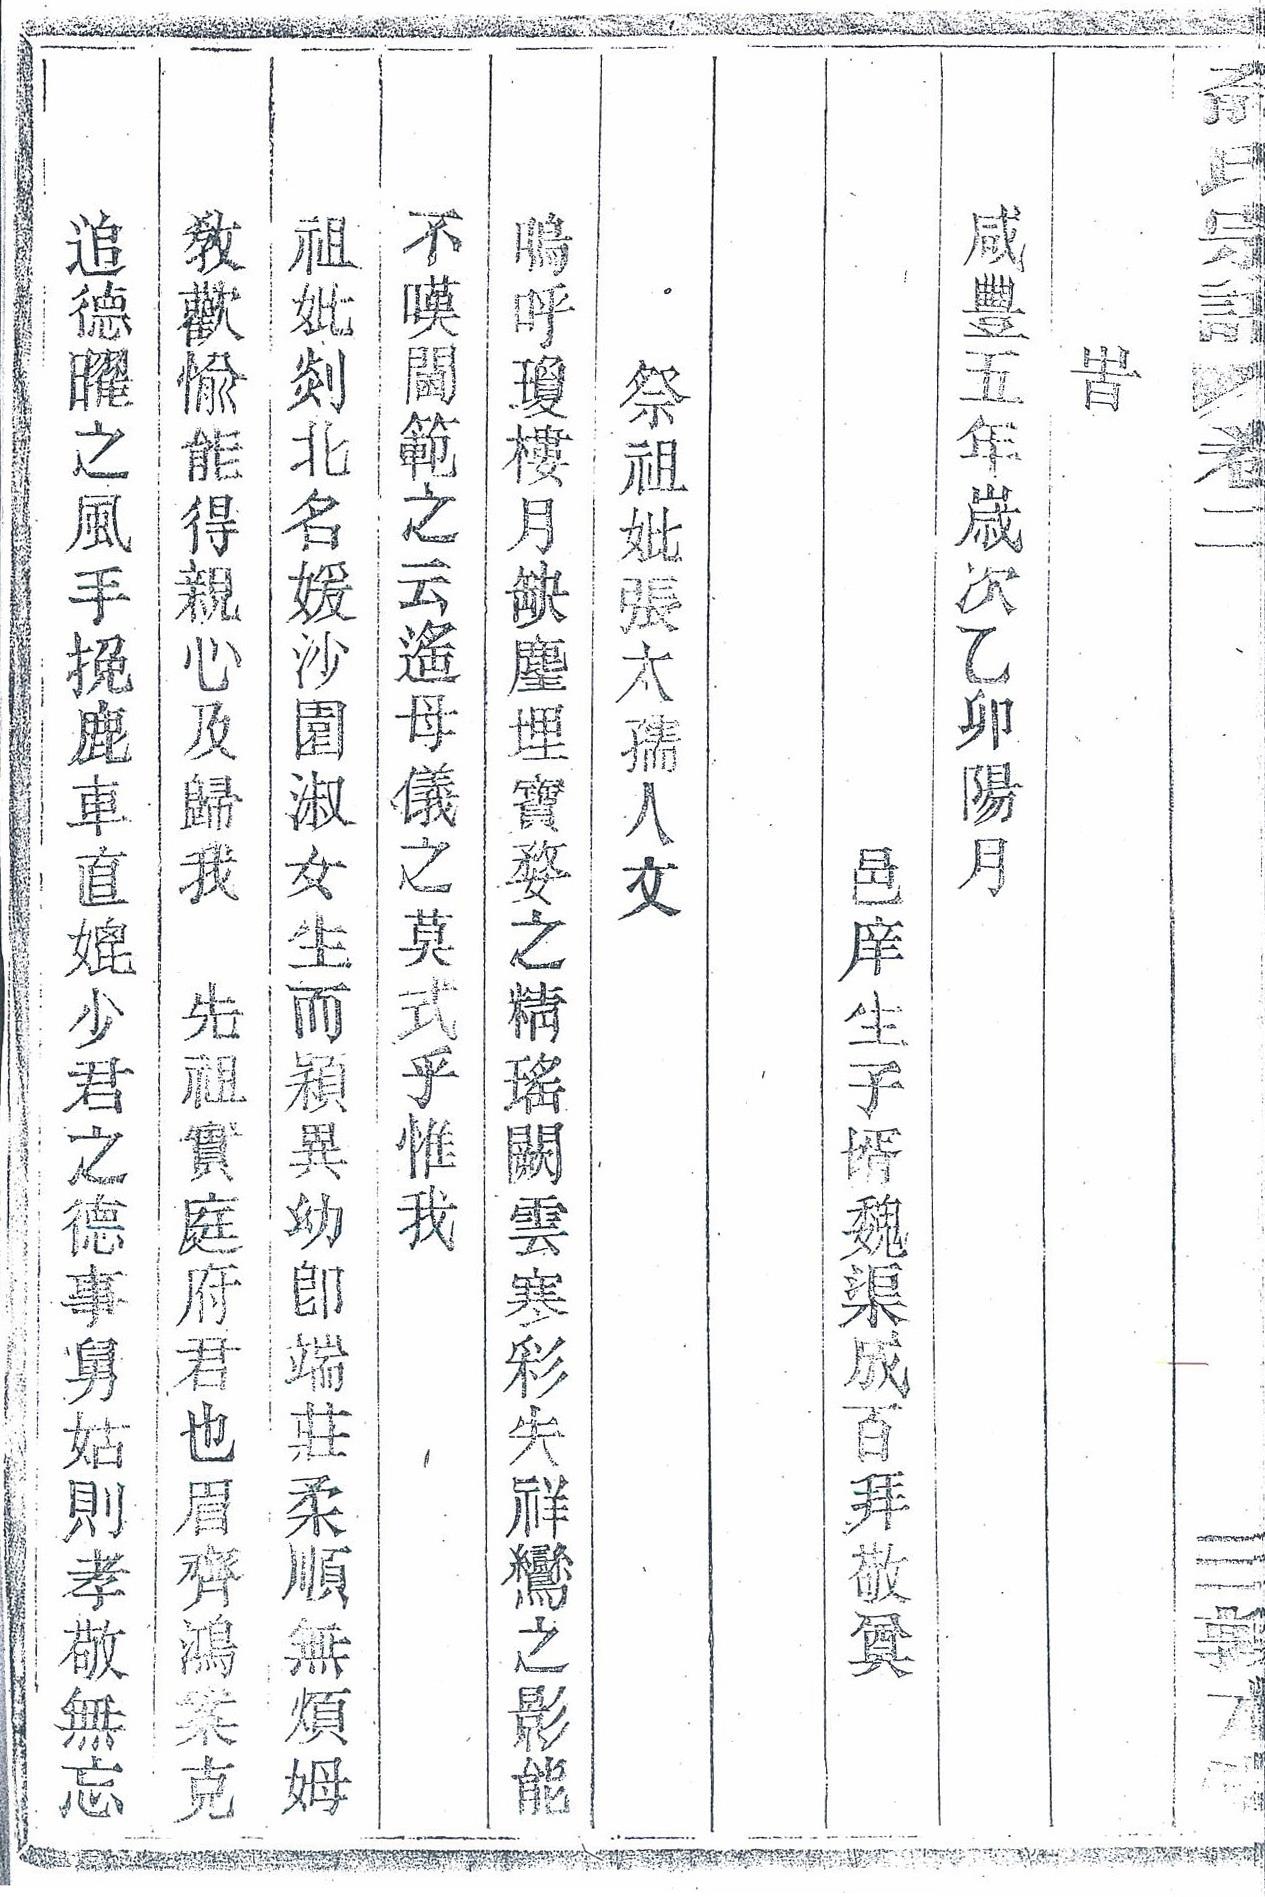 卷二
旹
咸豐五年歲次乙卯陽月
邑庠生子壻魏渠成百拜敬奠
祭祖妣張太孺人文
嗚呼瓊樓月缺塵埋寶婺之精瑤闕雲寒彩失祥鸞之影能
不嘆閫範之云遙母儀之莫式乎惟我
祖妣剡北名媛沙園淑女生而穎異幼卽端莊柔順無煩姆
敎歡愉能得親心及歸我 先祖實庭府君也眉齊鴻案克
追德曜之風手挽鹿車直媲少君之德事舅姑則孝敬無忘